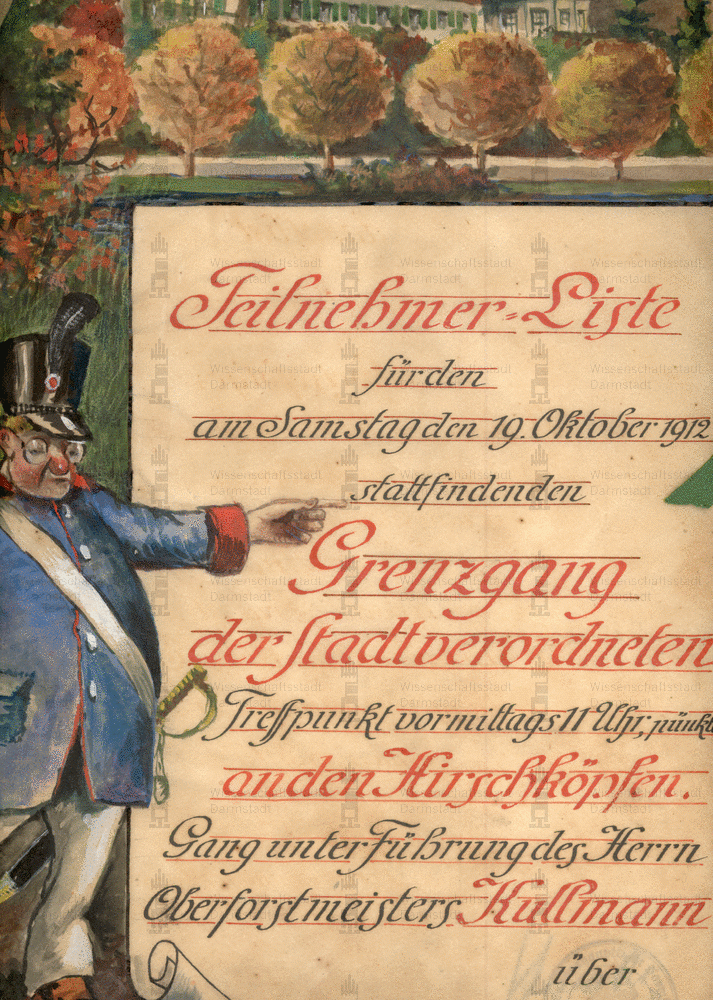 Teilnehmer-Liste
für den
am Samstag den 19. Oktober 1912
stattfindenden
Grenzgang
der Stadtverordneten
Treffpunkt vormittags 11 Uhr, pünkt
an den Hirschköpfen.
Gang unter Führung des Herrn
Oberforstmeisters Kullmann
über
Wissenschaftsstadt
Darmstadt